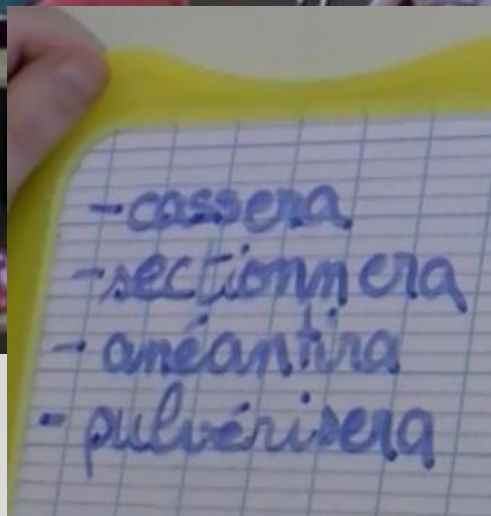 - cassera
- sectionnera
- anéantira
- pulvérisera